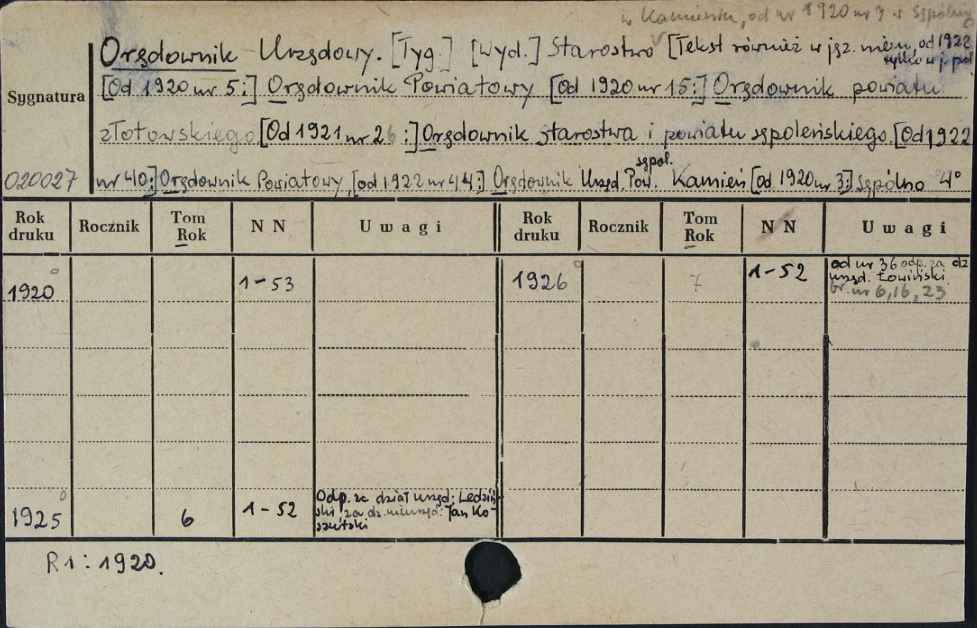 w Kamieniu, od nr 1920 nr 3 w Sępólnie
Orędownik Urzędowy. [Tyg.] [Wyd.] Starostwo [Tekst również w jęz. niem., od 1922
tylko w j. pol
Sygnatura
[Od 1920 nr 5:] Orędownik Powiatowy [Od 1920 nr 15:] Orędownik powiatu
złotowskiego [Od 1921 nr 26:] Orędownik starostwa i powiatu sępoleńskiego. [Od 1922
sępol.
020027
nr 40:] Orędownik Powiatowy, [od 1922 nr 44:] Orędownik Urzęd. Pow. Kamień [od 1920 nr 3:] Sępólno 4°
Rok druku Rocznik Tom Rok N N Uwagi Rok druku Rocznik Tom Rok N N Uwagi
1920 1-53 1926 7 1-52 od nr 36 odp. za dz
urzęd. Łowiński
br. nr 6, 16, 23
1925 6 1-52 Odp. za dział urzęd: Ledziń-
ski za dz. nieurzęd: Jan Ko-
szutski
R1: 1920.